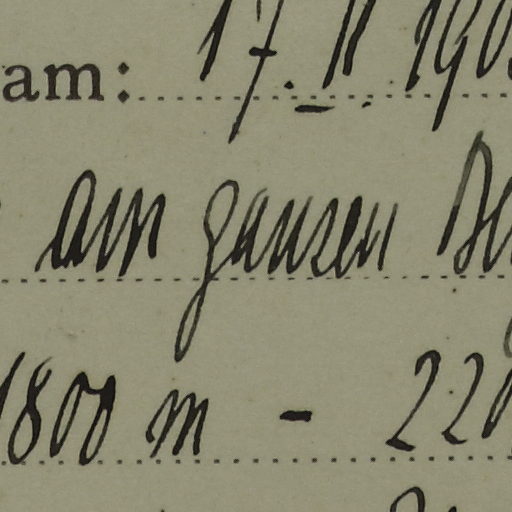 am: 17. II. 190
am ganzen Be
1800 m - 220